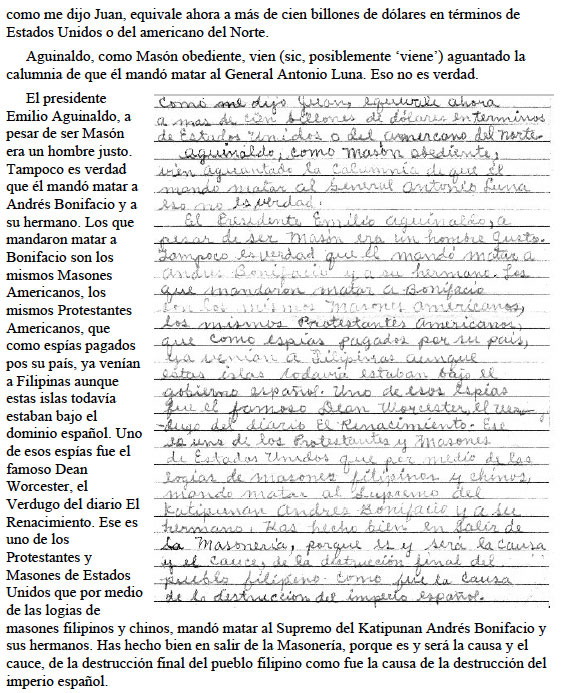 como me dijo Juan, equivale ahora a más de cien billones de dólares en términos de
Estados Unidos o del americano del Norte.
Aguinaldo, como Masón obediente, vien (sic, posiblemente ‘viene’) aguantado la
calumnia de que él mandó matar al General Antonio Luna. Eso no es verdad.
El presidente
Emilio Aguinaldo, a
pesar de ser Masón
era un hombre justo.
Tampoco es verdad
que él mandó matar a
Andrés Bonifacio y a
su hermano. Los que
mandaron matar a
Bonifacio son los
mismos Masones
Americanos, los
mismos Protestantes
Americanos, que
como espías pagados
pos su país, ya venían
a Filipinas aunque
estas islas todavía
estaban bajo el
dominio español. Uno
de esos espías fue el
famoso Dean
Worcester, el
Verdugo del diario El
Renacimiento. Ese es
uno de los
Protestantes y
Masones de Estados
Unidos que por medio
de las logias de
masones filipinos y chinos, mandó matar al Supremo del Katipunan Andrés Bonifacio y
sus hermanos. Has hecho bien en salir de la Masonería, porque es y será la causa y el
cauce, de la destrucción final del pueblo filipino como fue la causa de la destrucción del
imperio español.
Como me dijo Juan, equivale ahora
a mas de cien billones de dólares en terminos
de Estados Unidos o del americano del Norte.
Aguinaldo, como Masón obediente,
vien aguantado la calumnia de que él
mandó matar al General Antonio Luna
eso no es verdad.
El Presidente Emilio Aguinaldo, a
pesar de ser Masón era un hombre justo.
Tampoco es verdad que él mandó matar a
Andres Bonifacio y a su hermano. Los
que mandaron matar a Bonifacio
son los mismos Masones americanos,
los mismos Protestantes Americanos,
que como espías pagados por su país,
ya venían a Filipinas aunque
estas islas todavía estaban bajo el
gobierno español. Uno de esos espías
fue el famoso Dean Worcester, el ver-
dugo del diario El Renacimiento. Ese
es uno de los Protestantes y Masones
de Estados Unidos que por medio de las
logias de masones filipinos y chinos,
mando matar al Supremo del
Katipunan Andres Bonifacio y a su
hermano. Has hecho bien en salir de
la Masonería, porque es y será la causa
y el cauce, de la destrucción final del
pueblo filipino como fue la causa
de la destrucción del imperio español.